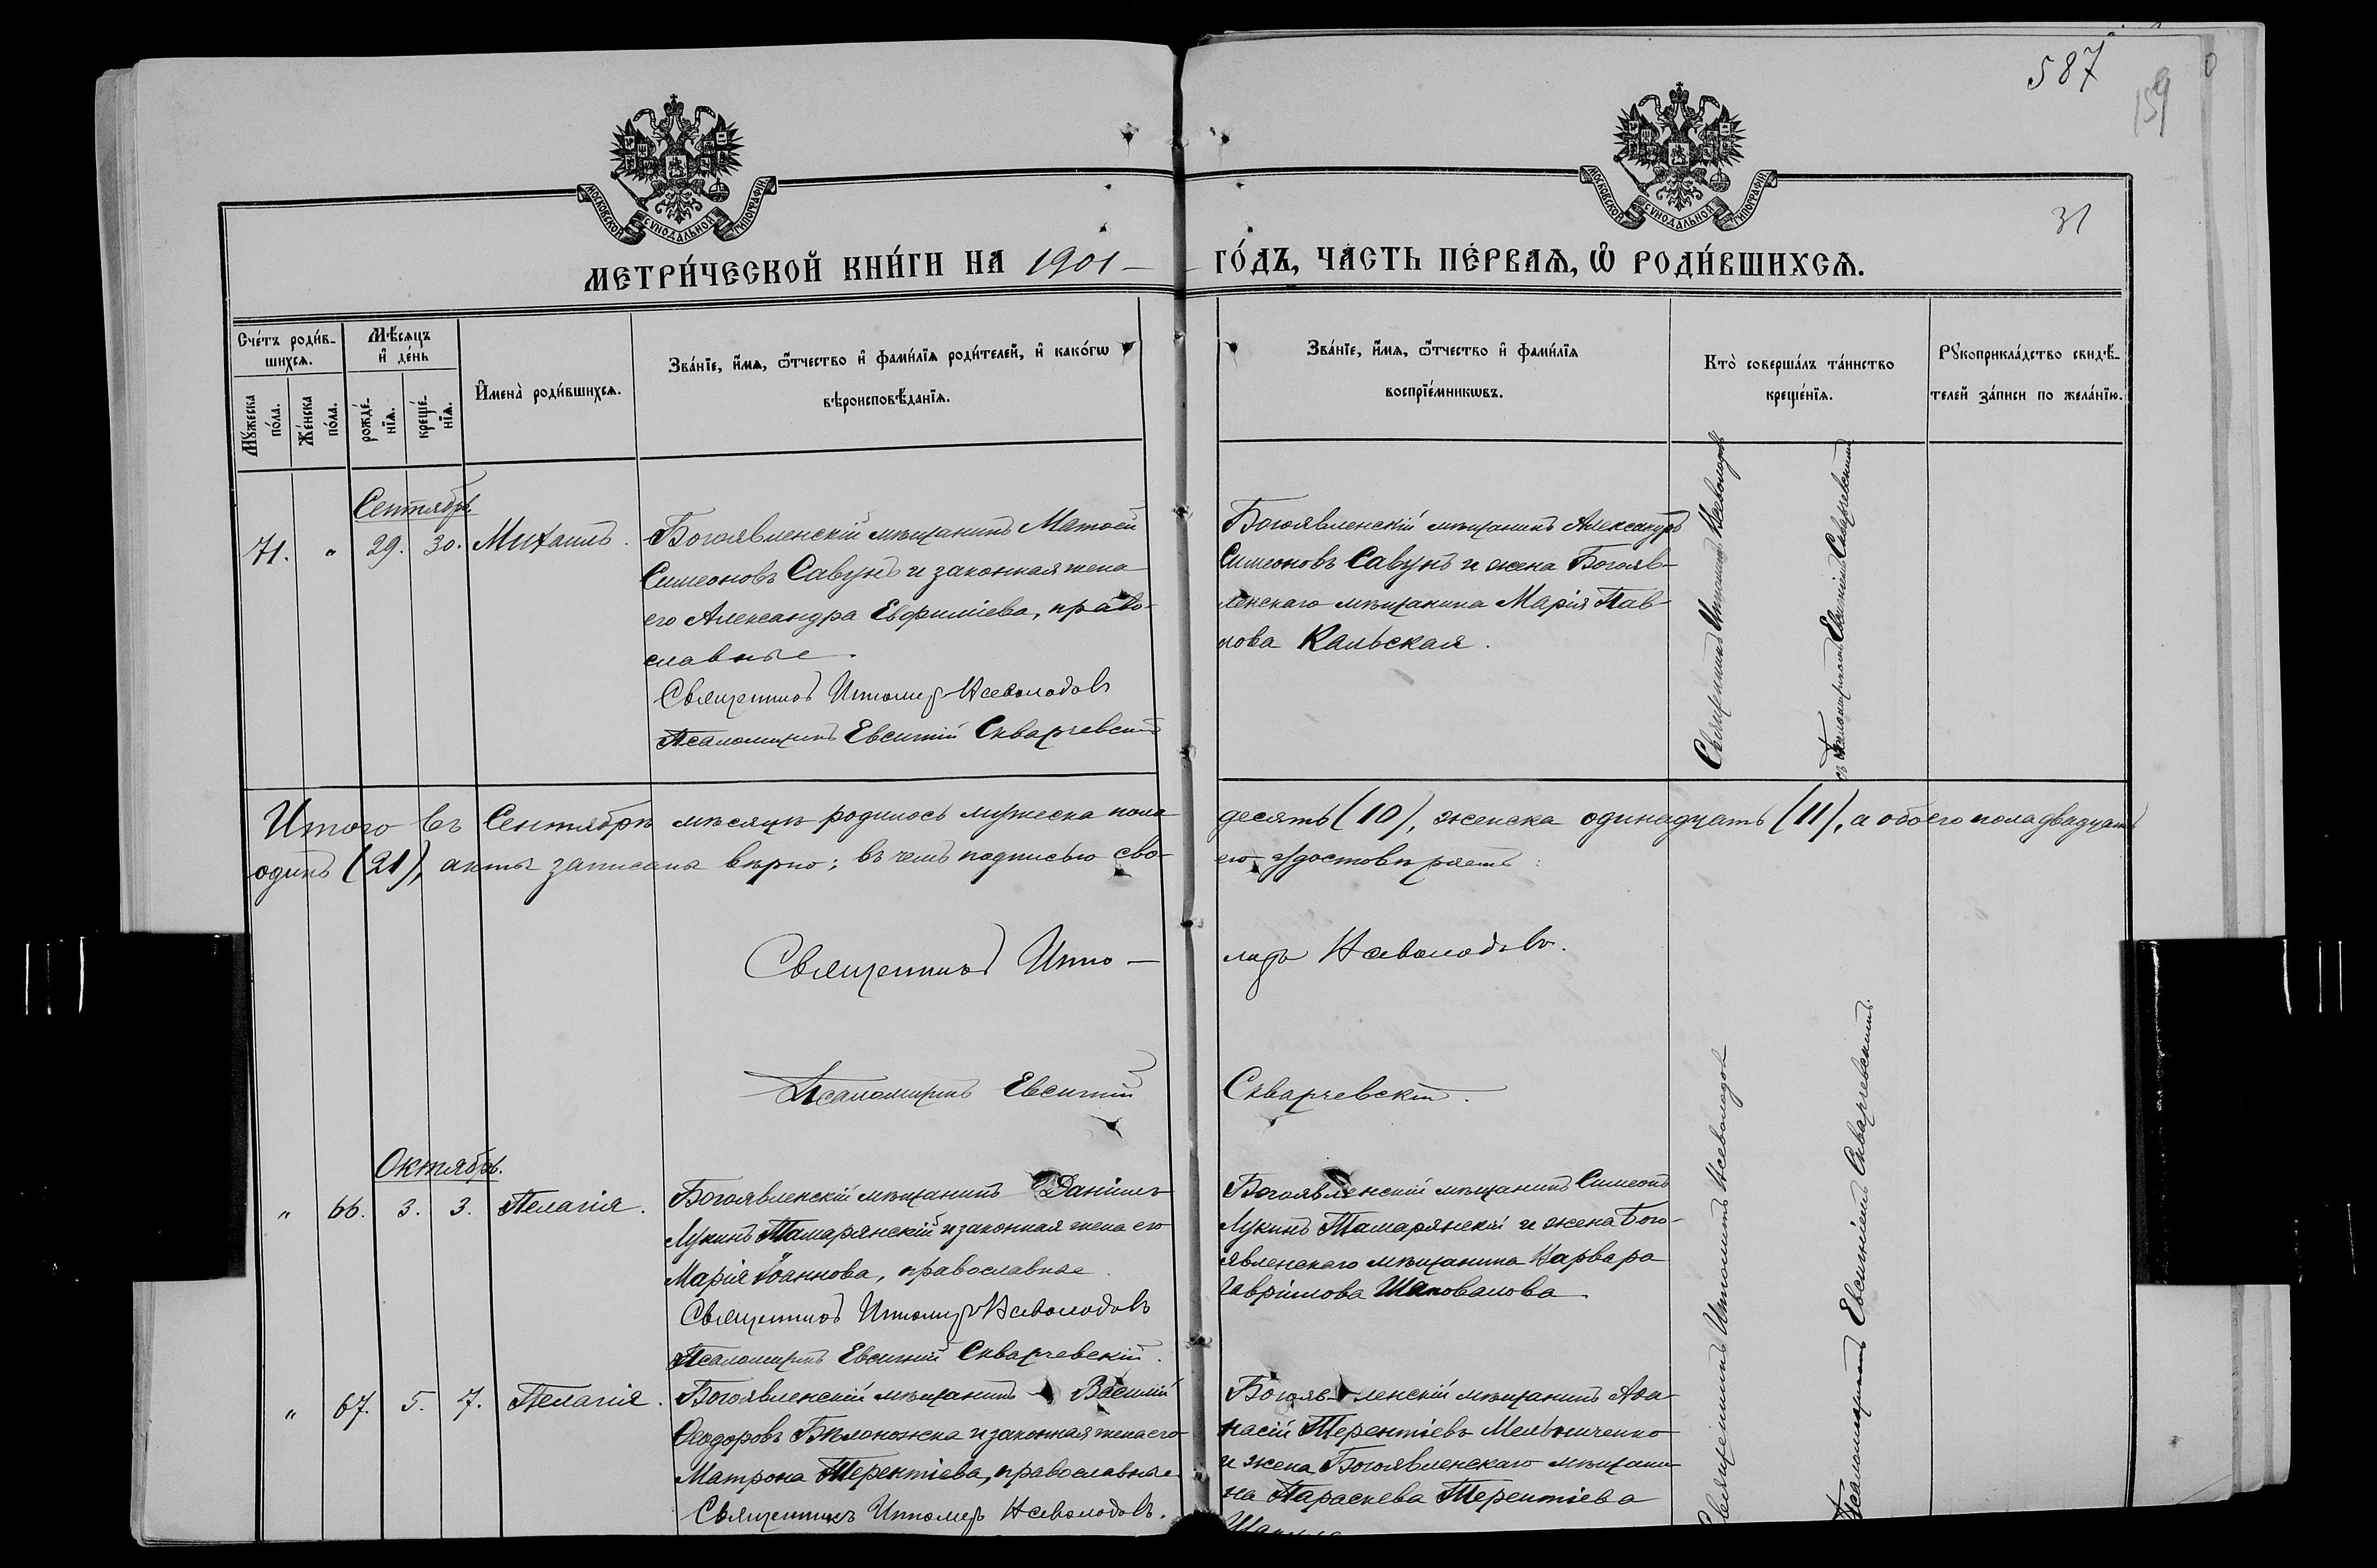 587
159
31
МОСКОВСКОЙ СѴНОДАЛЬНОЙ ТИПОГРАФІИ
МОСКОВСКОЙ СѴНОДАЛЬНОЙ ТИПОГРАФІИ
МЕТРИ́ЧЕСКОЙ КНИ́ГИ НА 1901 ГО́ДЪ, ЧА́СТЬ ПЕ́РВАѦ, Ѽ РОДИ́ВШИХСѦ.
Сче́тъ роди́в-
шихсѧ.
Мꙋ́жеска по́ла.
Же́нска по́ла.
Мѣ́сяцъ
и҆ де́нь
рожде́-
нїѧ.
креще́-
нїѧ.
И҆мена̀ роди́вшихсѧ.
Зва́нїе, и҆́мѧ, ѻ҆́тчество и҆ фами́лїѧ роди́телей, и҆ како́гѡ
вѣроисповѣ́данїѧ.
Зва́нїе, и҆́мѧ, ѻ҆́тчество и҆ фами́лїѧ
воспрїе́мникѡвъ.
Кто̀ соверша́лъ та́инство
креще́нїѧ.
Рꙋкоприкла́дство свидѣ́-
телей за́писи по жела́нїю.
Сентябрь.
71. " 29. 30. Михаилъ.
Богоявленскій мѣщанинъ Матѳей
Симеоновъ Савунъ и законная жена
его Александра Евфиміева, право-
славные.
Священникъ Ипполитъ Всеволодовъ
Псаломщикъ Евсигній Скварчевскій
Богоявленскій мѣщанинъ Александръ
Симеоновъ Савунъ и жена Богояв-
ленскаго мѣщанина Марія Пав-
лова Кальская.
Священникъ Ипполитъ Всеволодовъ
съ Псаломщикомъ Евсигніемъ Скварчевскимъ
Итого въ Сентябрѣ мѣсяцѣ родилось мужеска пола десять (10), женска одинадцать (11), а обоего пола двадцать
одинъ (21), акты записаны вѣрно; въ чемъ подписью сво- ею удостовѣряетъ:
Священникъ Иппо- литъ Всеволодовъ.
Псаломщикъ Евсигній Скварчевскій.
Октябрь.
" 66. 3. 3. Пелагія.
Богоявленскій мѣщанинъ Даніилъ
Лукинъ Тамарянскій и законная жена его
Марія Іоаннова, православные.
Священникъ Ипполитъ Всеволодовъ
Псаломщикъ Евсигній Скварчевскій.
Богоявленскій мѣщанинъ Симеонъ
Лукинъ Тамарянскій и жена Бого-
явленскаго мѣщанина Варвара
Гавріилова Шаповалова
Священникъ Ипполитъ Всеволодовъ
Псаломщикомъ Евсигніемъ Скварчевскимъ.
" 67. 5. 7. Пелагія.
Богоявленскій мѣщанинъ Василій
Ѳеодоровъ Бѣлоножка и законная жена его
Матрона Терентіева, православные
Священникъ Ипполитъ Всеволодовъ.
Богояв-ленскій мѣщанинъ Аѳа-
насій Терентіевъ Мельниченко
и жена Богоявленскаго мѣщани-
на Параскева Терентіева